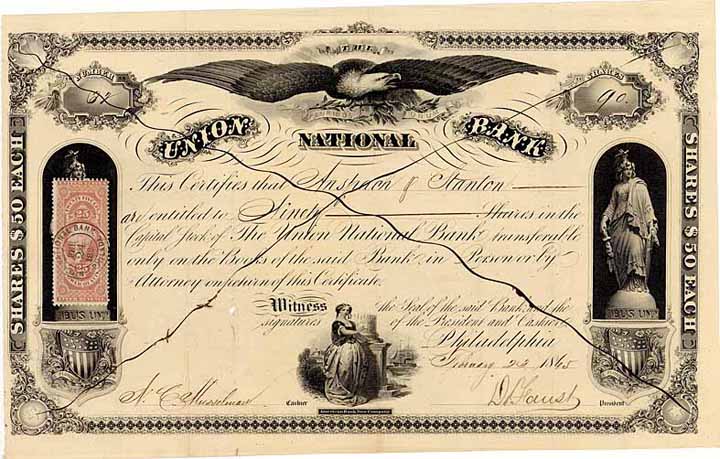 THE
NUMBER
SHARES
90.
UNION NATIONAL BANK
This Certifies that & Stanton
are entitled to Ninety Shares in the
Capital Stock of The Union National Bank, transferable
only on the Books of the said Bank, in Person or by
Attorney on return of this Certificate.
Witness the Seal of the said Bank, and the
signatures of the President and Cashier.
Philadelphia
February 22 1865
N. C. Musselman Cashier
D. Faust President
American Bank Note Company
SHARES $50 EACH
SHARES $50 EACH
25
25